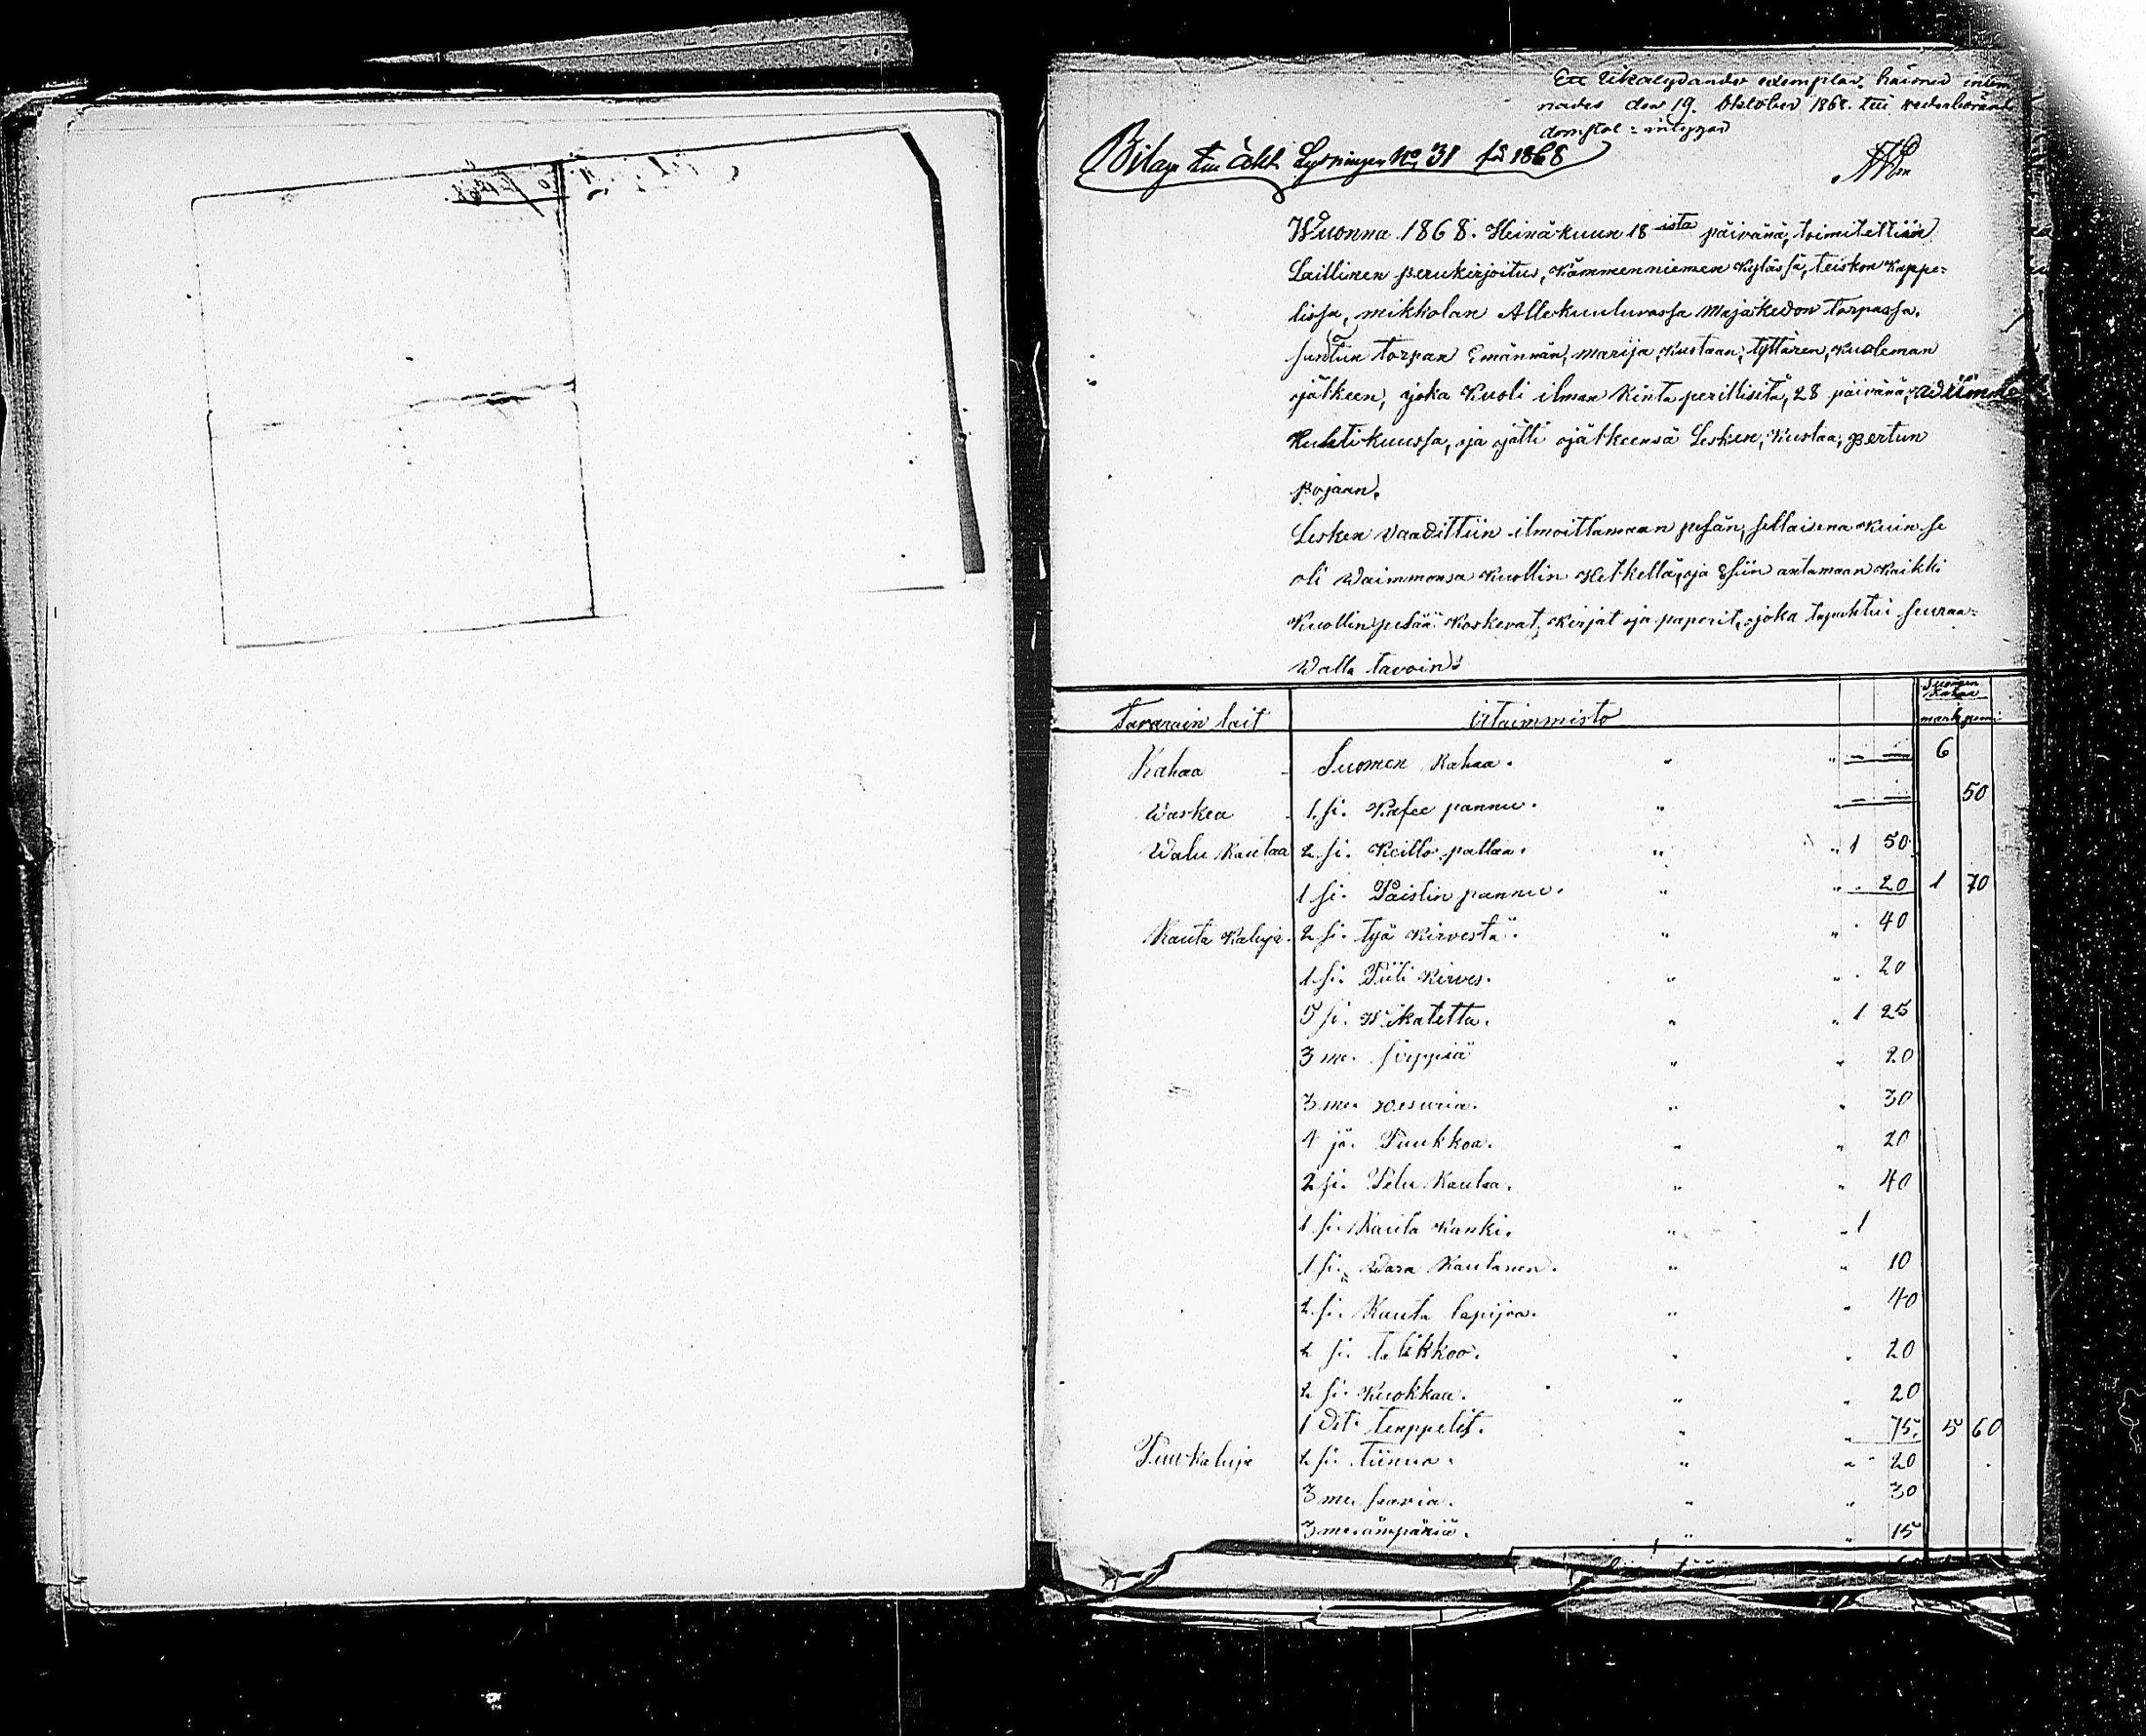 Ett likalydande exemplar härmed inlem-
nades den 19. Oktober 1868. till vederbörande
domstol: intygar
Bilaga till åkl. Lysningen No 31 för 1868
Wuonna 1868. Heinäkuun 18 ista päivänä, toimitettiin
Laillinen perukirjoitus, Kämmenniemen Kyläsſä, teiskon Kappe-
lisſa, mikkolan Allekuuluvasſa Majakedon torpasſa.
torpan Emännän, Marija, Kustaan, tyttären, Kuoleman
jälkeen, joka Kuoli ilman Rinta perillisitä, 28 päivänä, wiimme
Huhtikuusſa, ja jätti jälkeensä Lesken, Kustaa, Pertun
Pojaan.
Lesken vaadittiin ilmoittamaan peſän, ſellaisena Kuin ſe
oli Waimmonsa Kuollin Hetkellä, ja Eſiin antamaan Kaikki
Kuollinpeſää Koskevat, Kirjat ja paperit, joka tapahtui ſeuraa-
Walla tavoin:
Suomen
Rahaa
Tavarain lait Ulaimmisto mark pen:
Rahaa Suomen Rahaa. " " — — 6
Waskea 1. ſi. Kafee pannu. " — — 50
Walu Rautaa 2 ſi. Keitto pattaa. " " 1 50
1 ſi. Paistin pannu. " " 20 1 70
Rauta Kaluja. 2 ſi. työ Kirvestä. " " 40
1 ſi. Piili Kirves. " " 20
5 ſi. Wikatetta. " " 1 25
3 me. ſirppiä " " 20
3 me. vesuria. " " 30
4 jä. Puukkoa. " " 20
2 ſi. Pelu Rautaa. " " 40
1 ſi. Rauta Kanki. " " 1
1 ſi. Wara Rautanen. " " 10
2 ſi. Rauta lapijoa. " " 40
2 ſi. talikkoo. " " 20
2 ſi. Kuokkaa. " " 20
1 Vit. temppelit. " " 75 5 60
Puu Kaluja 2 ſi. tiinua. " " 20
3 me. ſaavia. " " 30
3 me. ämpäriä. " " 15